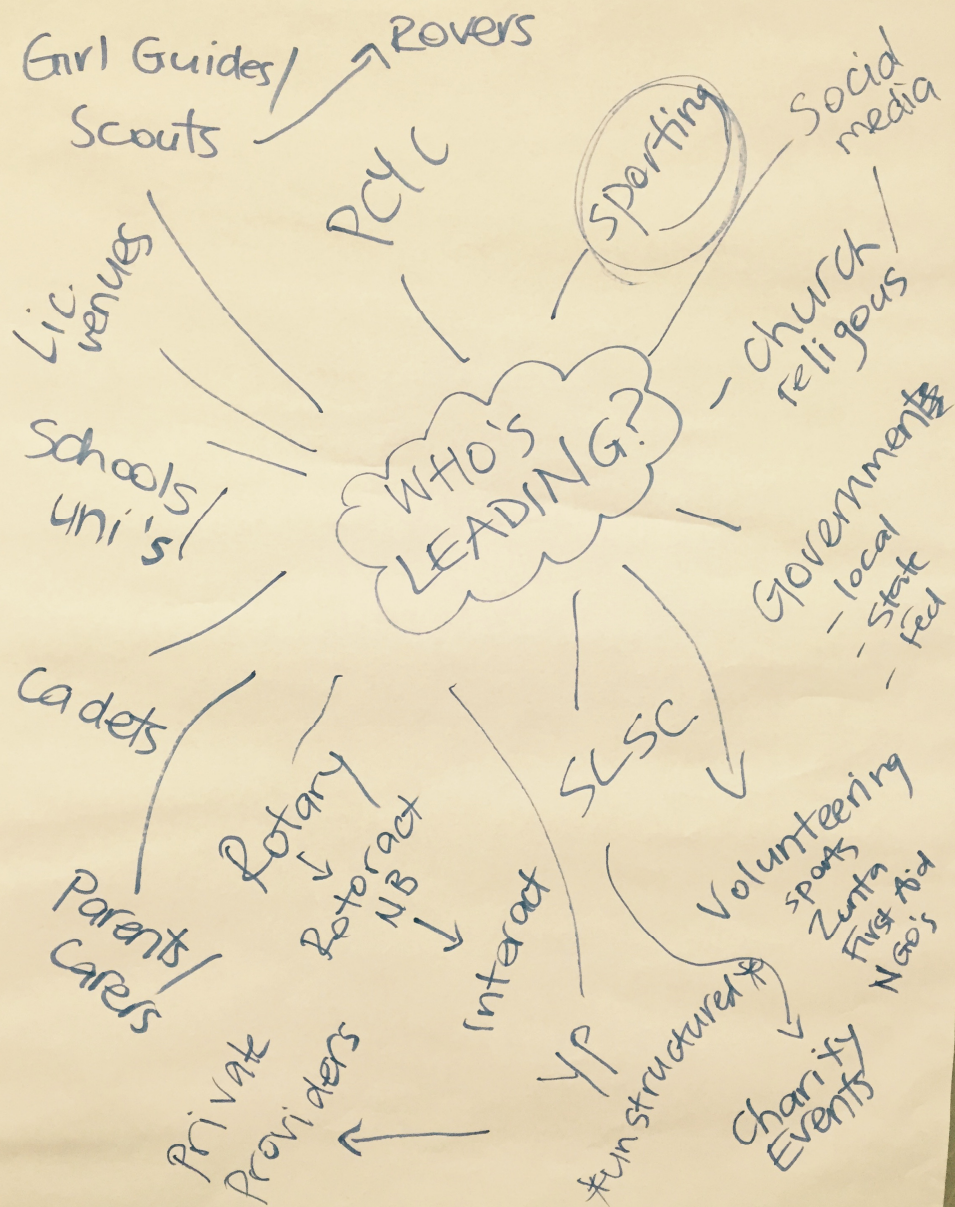 Girl Guides/
Scouts
Rovers
PCYC
sporting
Social
media
Lic.
venues
Church/
religous
WHO'S
LEADING?
Schools
uni's/
Governments
- local
- State
- Fed
Cadets
SLSC
Rotary
Rotoract
NB
Interact
Volunteering
sports
Zonta
First Aid
NGO's
Parents/
Carers
YP
*unstructured*
Charity
Events
Private
Providers